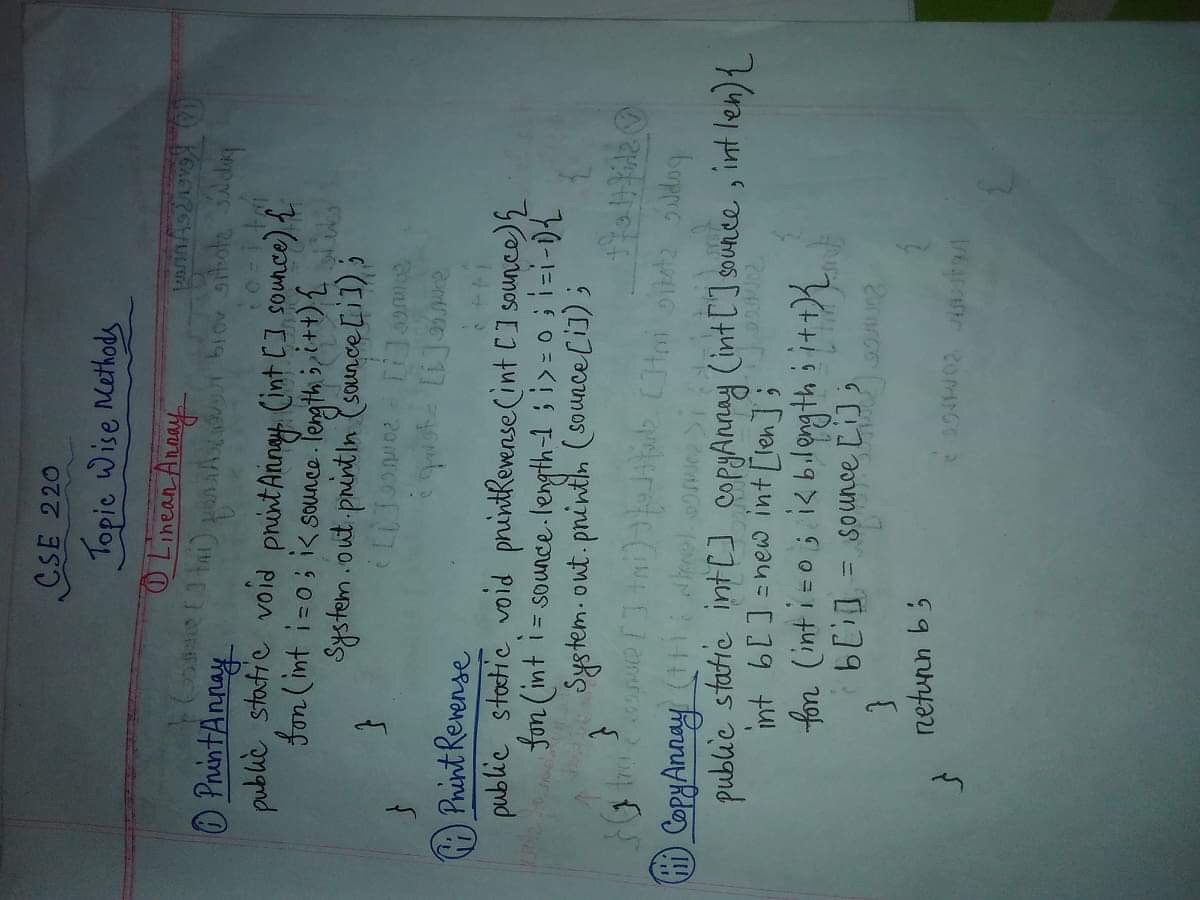 CSE 220
Topic Wise Methods
① Linear Array
ⓘ PrintArray
public static void printArray (int [] source) {
for (int i = 0; i < source.length; i++) {
System.out.println (source [i]);
}
}
ⓘⓘ PrintReverse
public static void printReverse (int [] source) {
for (int i = source.length-1; i >= 0; i = i-1) {
System.out.println (source [i]);
}
}
ⓘⓘⓘ CopyArray
public static int [] copyArray (int [] source, int len) {
int b [] = new int [len];
for (int i = 0; i < b.length; i++) {
b [i] = source [i];
}
return b;
}